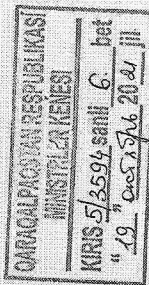 QARAQALPAQSTAN RESPUBLIKASÍ
MINISTRLER KEŃESI
KIRIS 5/3594 sanlı 6. bet
"19" октябрь 2021 jıl